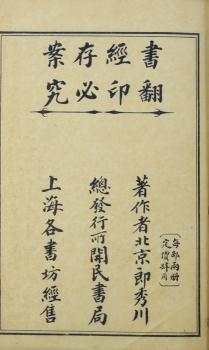 書經存案
翻印必究
每部兩冊
定價肆角
著作者北京郎秀川
總發行所開民書局
上海各書坊經售